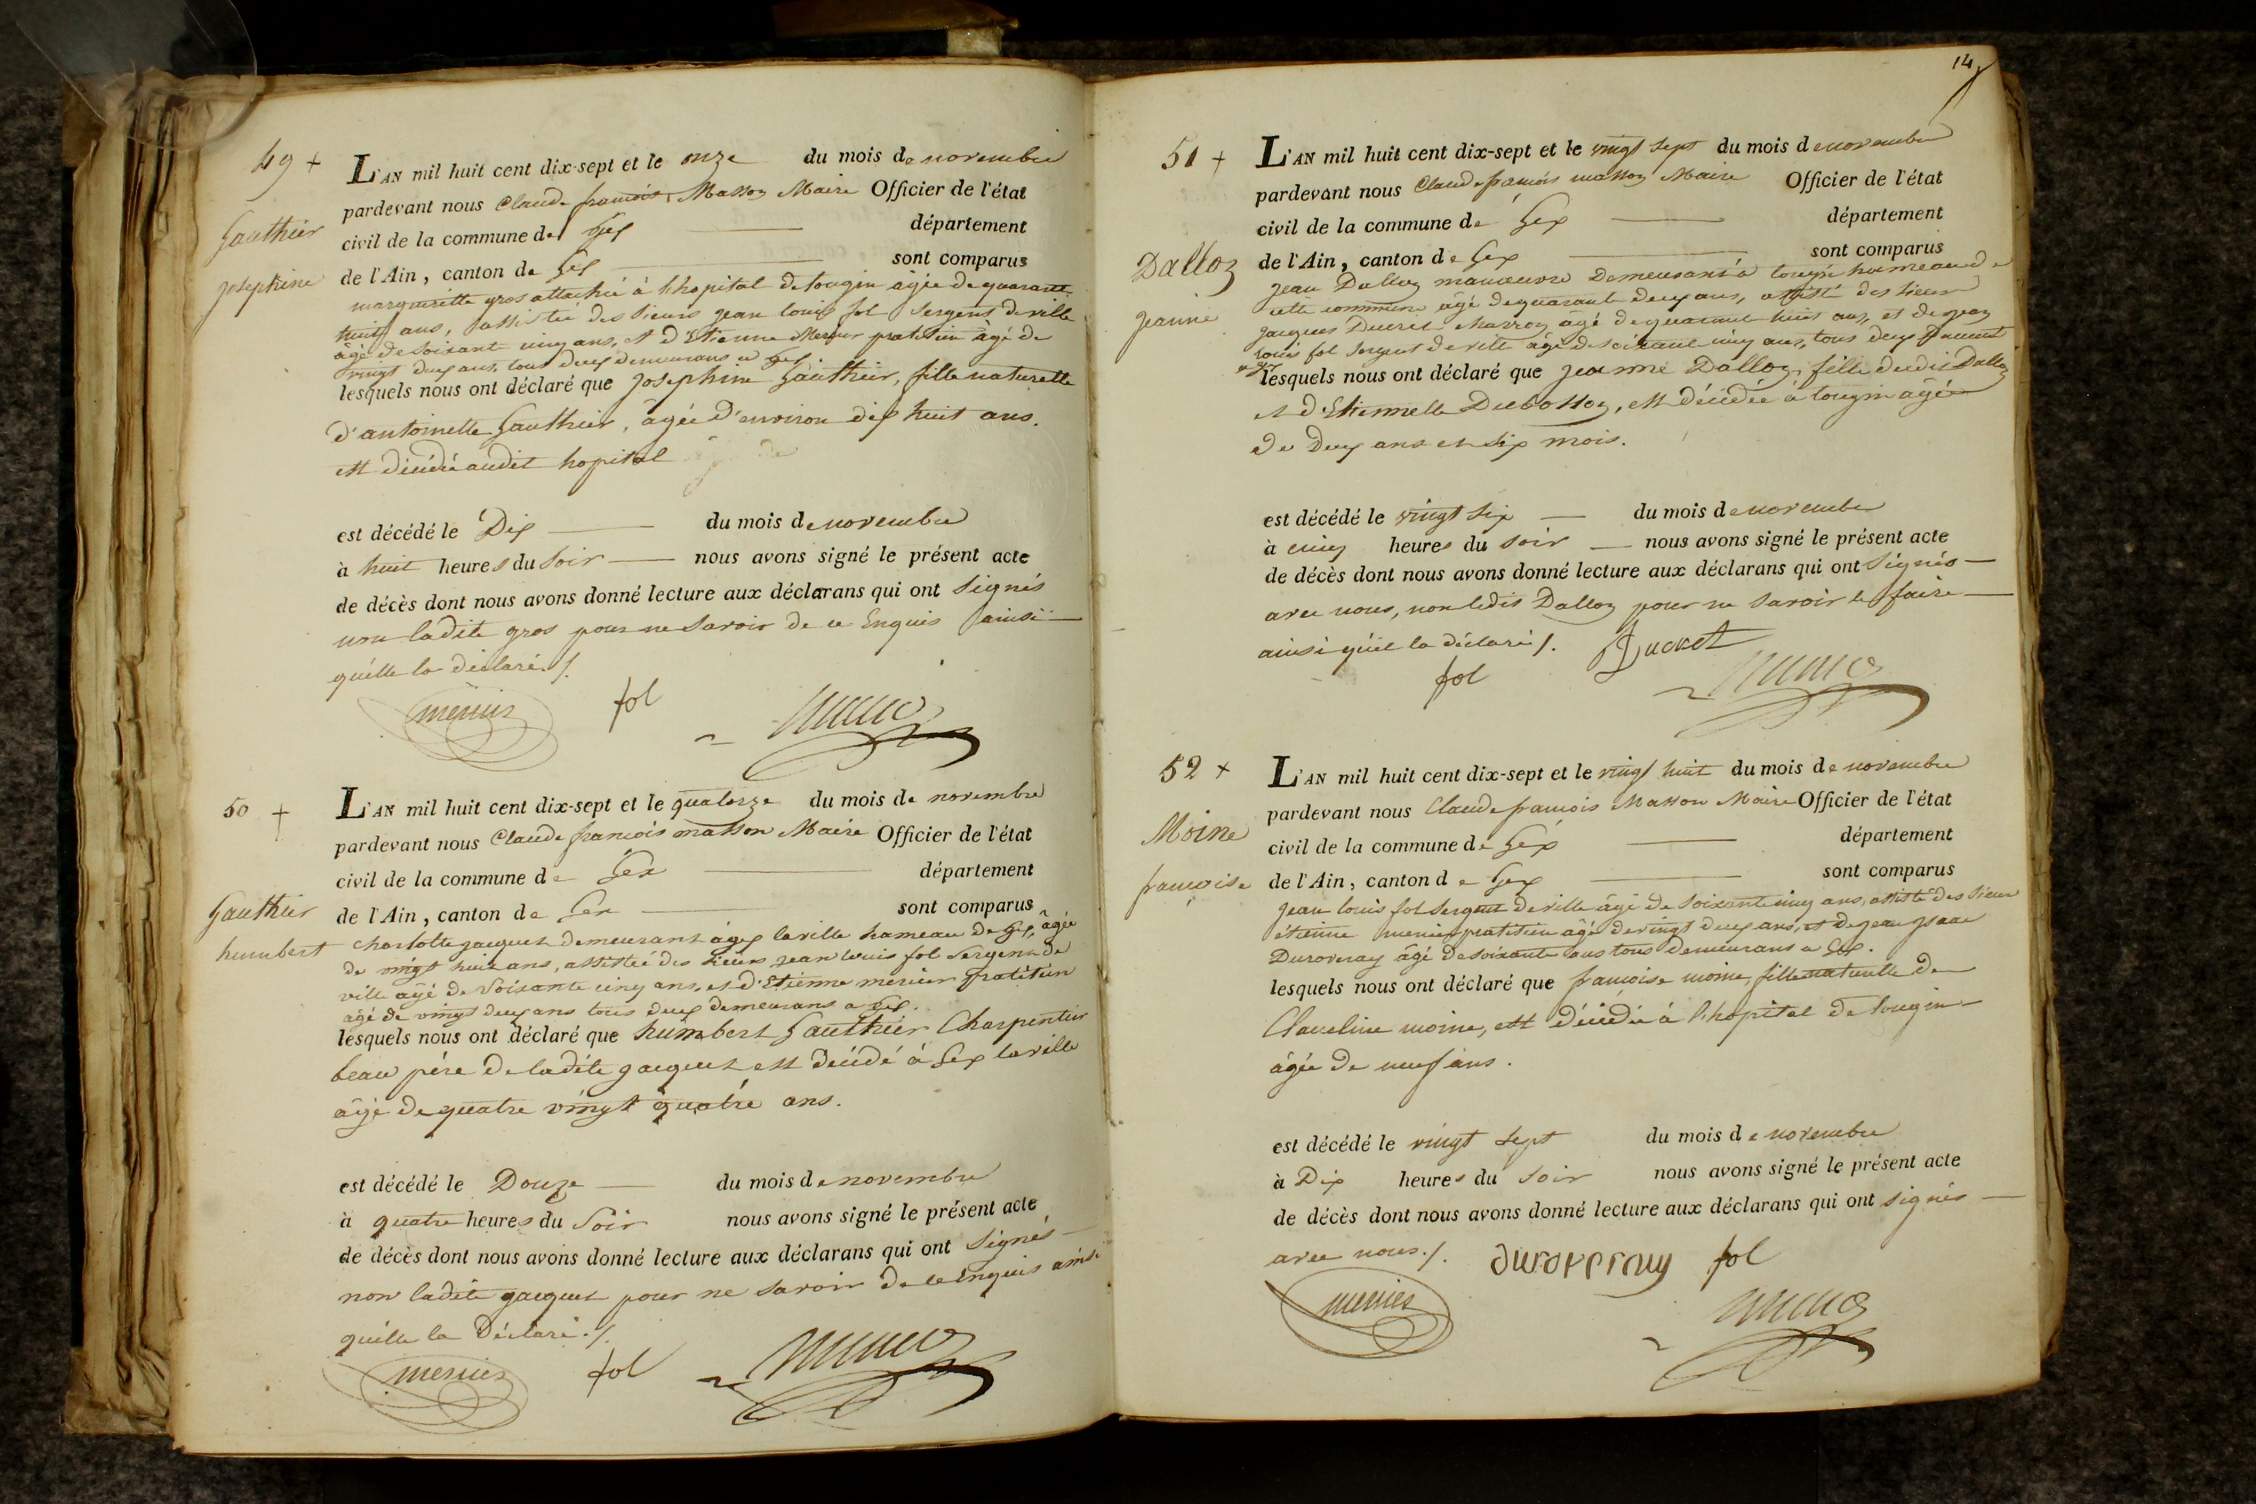 49 +
Gauthier
Josephine
L'AN mil huit cent dix-sept et le onze du mois de novembre
pardevant nous Claude françois Masson Maire Officier de l'état
civil de la commune de Gex département
de l'Ain, canton de Gex sont comparus
margueritte gros attachée à l'hopital de tougin âgée de quarante
huit ans, assistée des sieurs jean louis fol sergent de ville
âgé de soixante cinq ans, et d'Etienne Mercier pratitien âgé de
vingt deux ans, tous deux demeurans a Gex
lesquels nous ont déclaré que Josephine Gauthier, fille naturelle
d'antoinette Gauthier, âgée d'environ dix huit ans.
est décédée audit hopital
est décédé le Dix du mois de novembre
à huit heures du soir nous avons signé le présent acte
de décès dont nous avons donné lecture aux déclarans qui ont signés
non ladite gros pour ne savoir de ce Enquis ainsi
qu'elle la déclaré ./.
mercier fol
50 +
Gauthier
humbert
L'AN mil huit cent dix-sept et le quatorze du mois de novembre
pardevant nous Claude françois masson Maire Officier de l'état
civil de la commune de Gex département
de l'Ain, canton de Gex sont comparus
Charlotte jacquet demeurant à gex la ville hameau de Gex, âgée
de vingt huit ans, assistée des sieurs jean louis fol sergent de
ville âgé de soixante cinq ans, et d'Etienne mercier pratitien
âgé de vingt deux ans tous deux demeurans a Gex.
lesquels nous ont déclaré que humbert Gauthier Charpentier
beau pére de ladite jacquet est décédé à Gex la ville
âgé de quatre vingt quatre ans.
est décédé le Douze du mois de novembre
à quatre heures du Soir nous avons signé le présent acte
de décès dont nous avons donné lecture aux déclarans qui ont signés
non ladite jacquet pour ne savoir de ce enquis ainsi
qu'elle la Déclaré ./.
mercier fol
14
51 +
Dalloz
jeanne
L'AN mil huit cent dix-sept et le vingt sept du mois de novembre
pardevant nous Claude françois masson Maire Officier de l'état
civil de la commune de Gex département
de l'Ain, canton de Gex sont comparus
jean Dalloz manoeuvre Demeurant à tougin hameau de
cette commune âgé de quarante deux ans, assisté des sieurs
jacques Ducret âgé de quarante huit ans, et de jean
louis fol sergent de ville âgé de soixante cinq ans, tous deux
lesquels nous ont déclaré que jeanne Dalloz, fille dudit Dalloz
et d'Etiennette Dubosson, est décédée à tougin âgée
de Deux ans et six mois.
est décédé le vingt six du mois de novembre
à cinq heures du soir nous avons signé le présent acte
de décès dont nous avons donné lecture aux déclarans qui ont signés
avec nous, non ledit Dalloz pour ne savoir le faire
ainsi qu'il la déclaré ./. Ducret
fol
52 +
Moine
françoise
L'AN mil huit cent dix-sept et le vingt huit du mois de novembre
pardevant nous Claude françois Masson Maire Officier de l'état
civil de la commune de Gex département
de l'Ain, canton de Gex sont comparus
jean louis fol sergent de ville âgé de soixante cinq ans, assisté des sieurs
étienne mercier pratitien âgé de vingt deux ans, et de jean jsaac
Duroveray âgé de soixante ans tous demeurans a Gex.
lesquels nous ont déclaré que françoise moine, fille naturelle de
Claudine moine, est décédée à l'hopital de tougin
âgée de neuf ans.
est décédé le vingt sept du mois de novembre
à Dix heures du soir nous avons signé le présent acte
de décès dont nous avons donné lecture aux déclarans qui ont signés
avec nous ./. duroveray fol
mercier